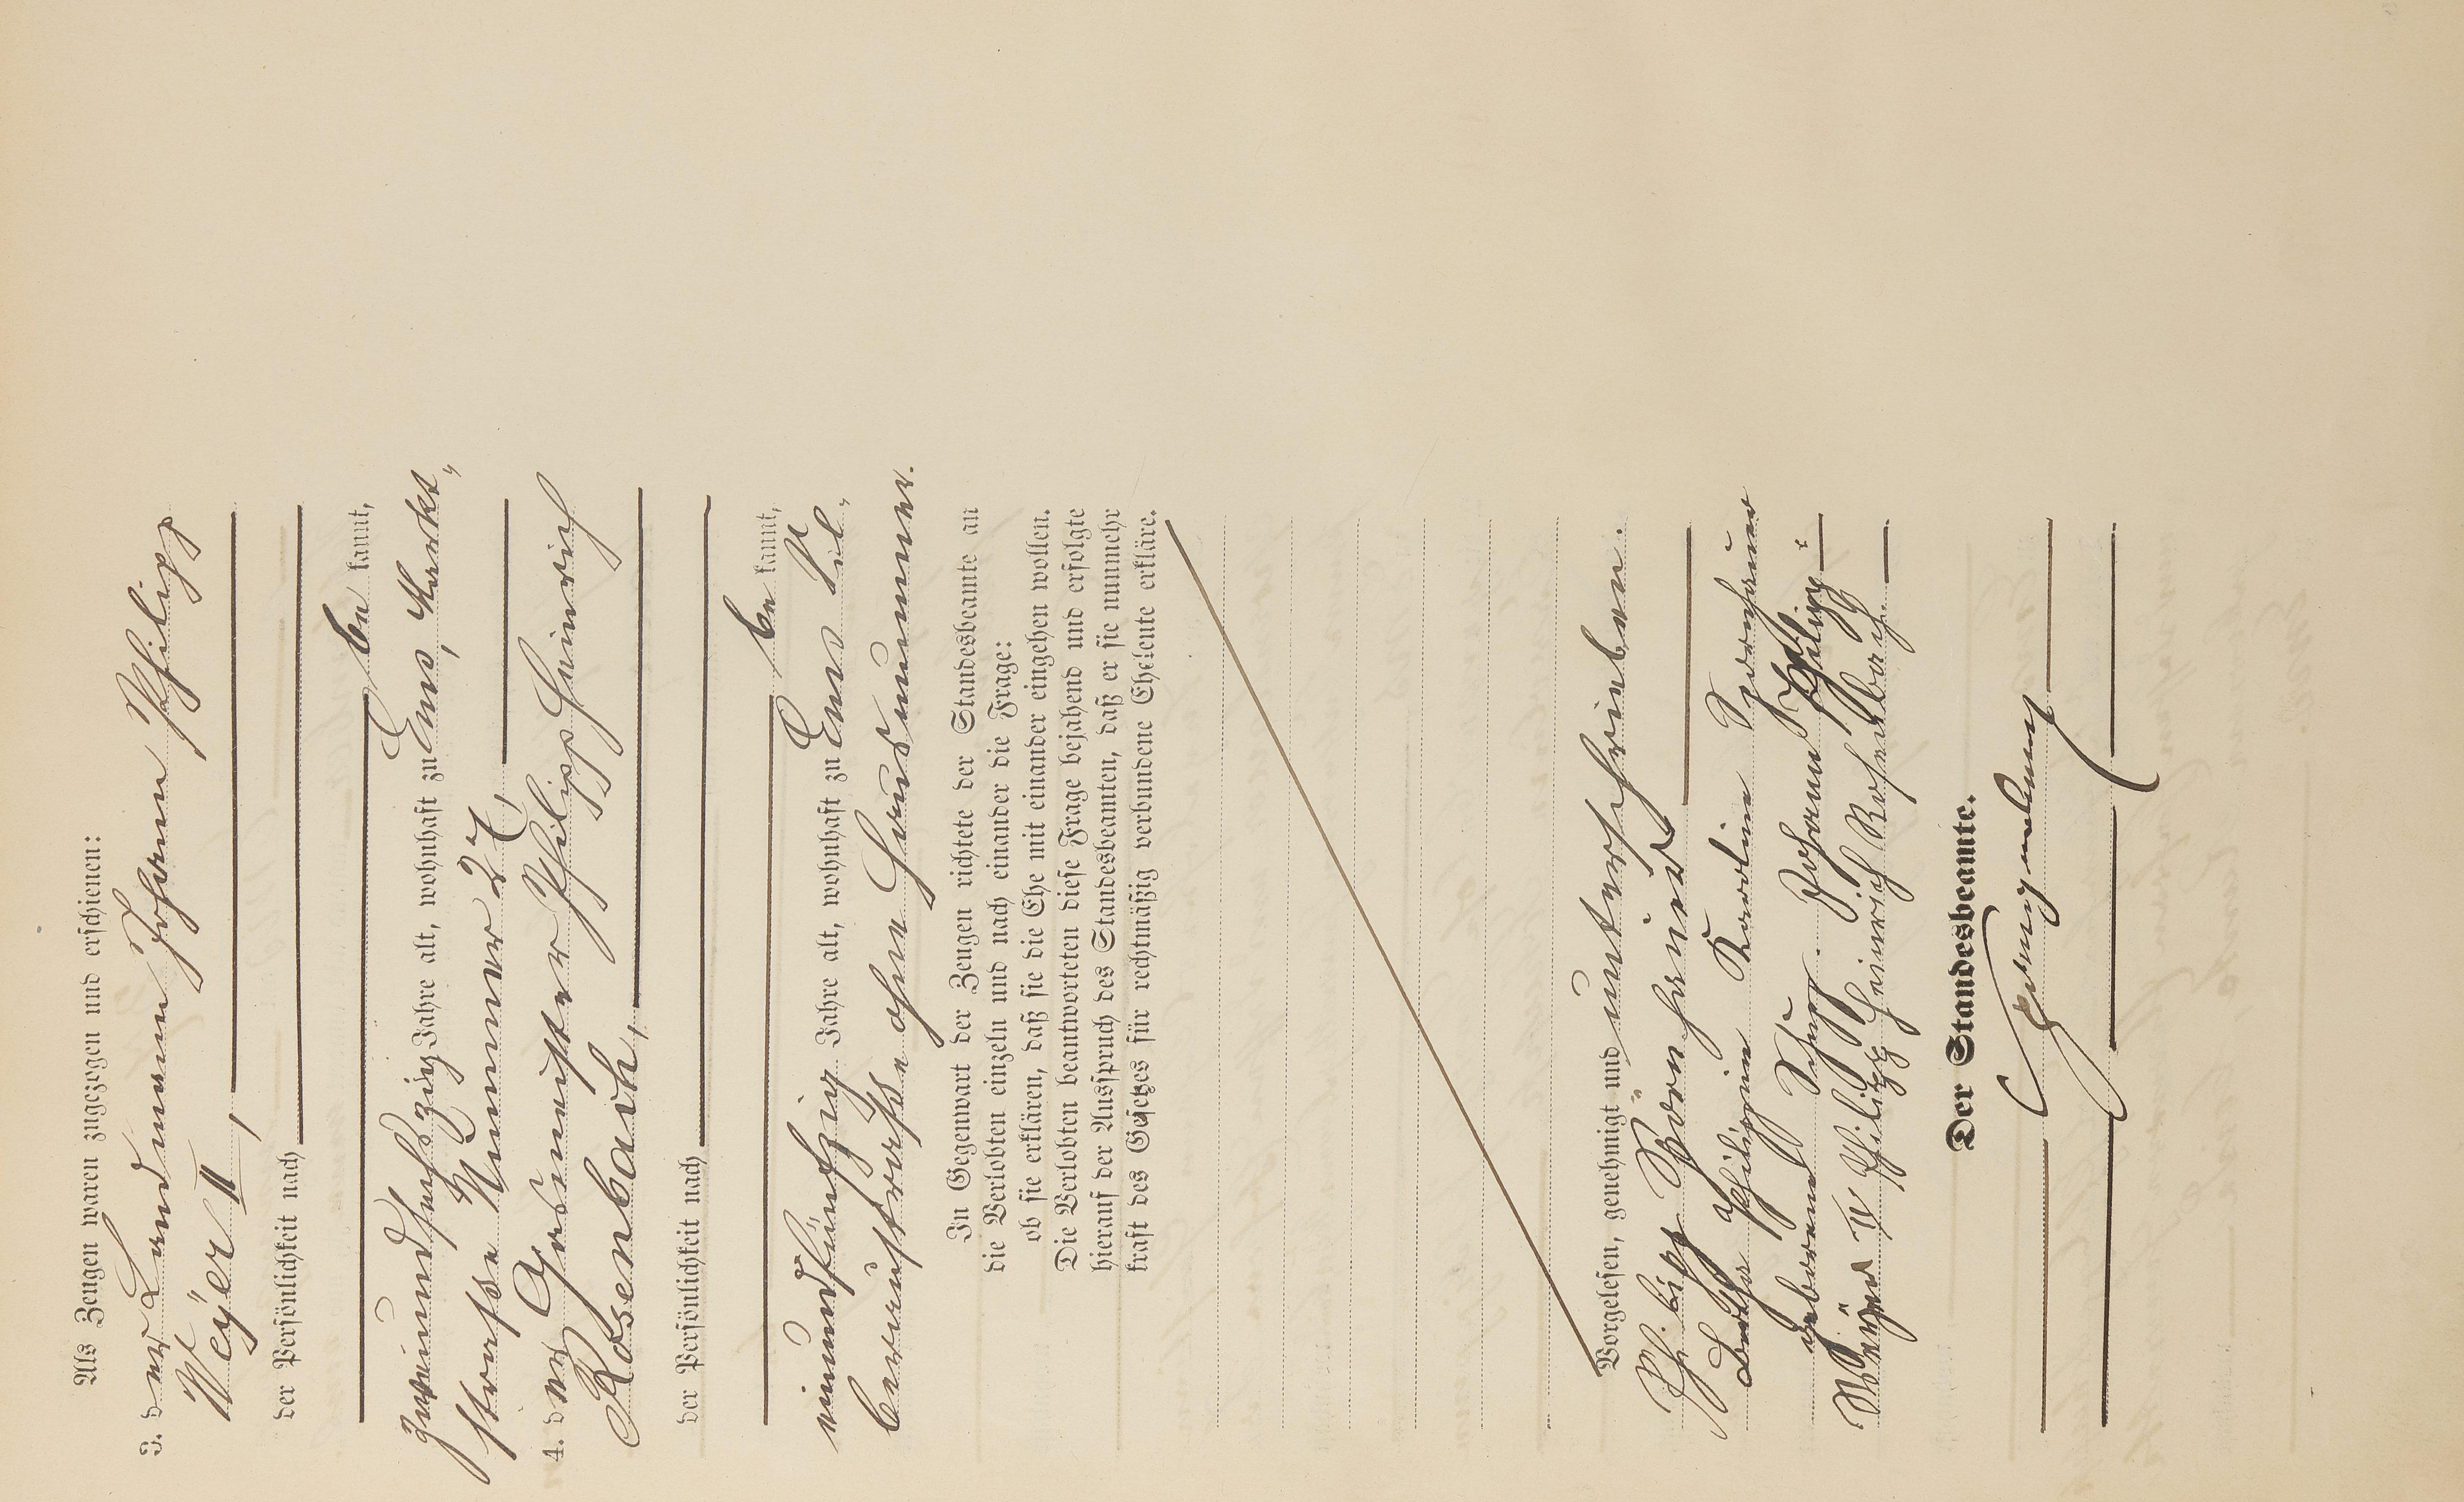 Als Zeugen waren zugezogen und erschienen:
3. der Landmann Johann Philipp
Weÿer II,
der Persönlichkeit nach
be kannt,
zweiundsechszig Jahre alt, wohnhaft zu Ems, Markt-
strasse Nummer 27,
4. der Grubensteiger Philipp Heinrich
Rosenbach,
der Persönlichkeit nach
be kannt,
einundfünfzig Jahre alt, wohnhaft zu Ems Sil-
beraustrasse ohne Hausnummer.
In Gegenwart der Zeugen richtete der Standesbeamte an
die Verlobten einzeln und nach einander die Frage:
ob sie erklären, daß sie die Ehe mit einander eingehen wollen.
Die Verlobten beantworteten diese Frage bejahend und erfolgte
hierauf der Ausspruch des Standesbeamten, daß er sie nunmehr
kraft des Gesetzes für rechtmäßig verbundene Eheleute erkläre.
Vorgelesen, genehmigt und unterschrieben.
Philipp
Philippine Karoline
geborene Johann Philipp
Weÿer IV Philipp Heinrich Rosenbach.
Der Standesbeamte.